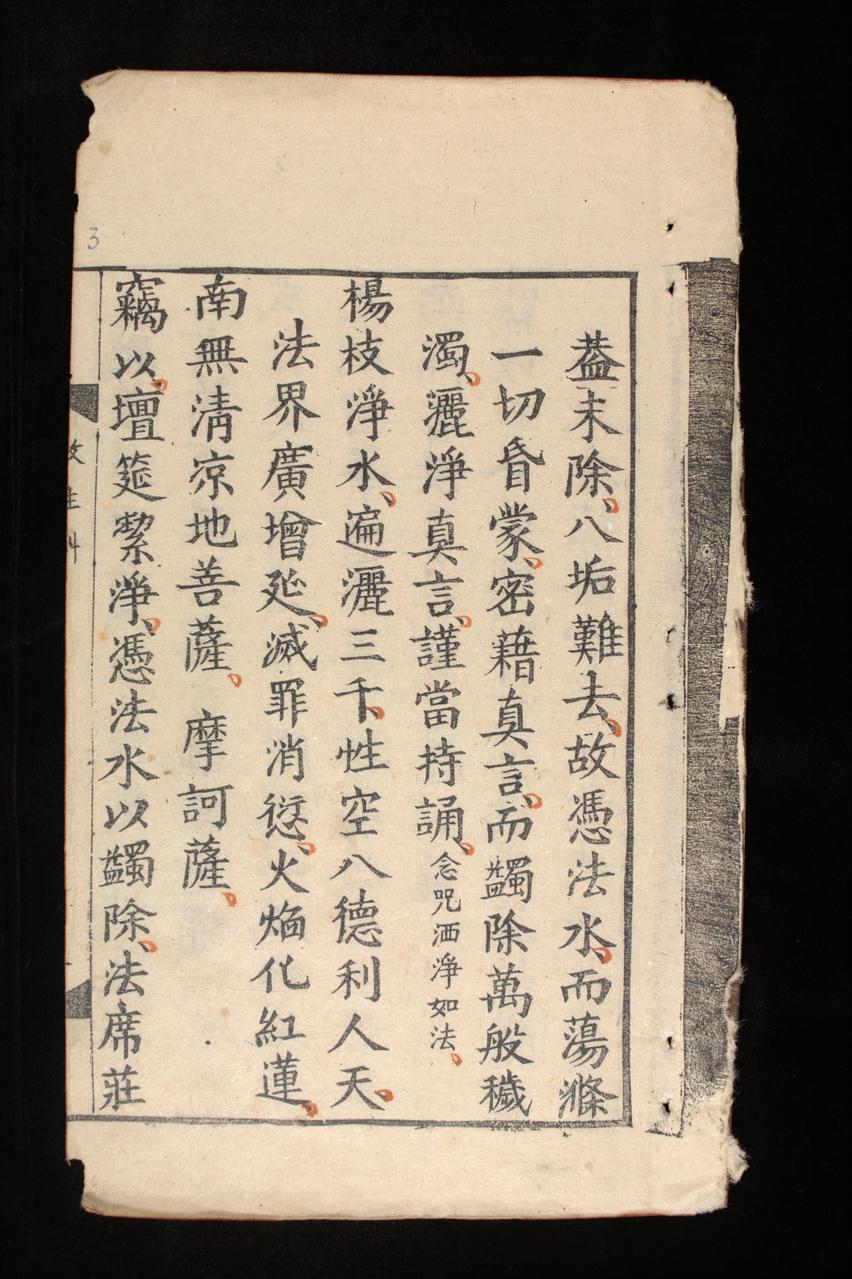 葢未除、八垢難去、故憑法水、而蕩滌
一切昏蒙、密藉真言、而蠲除萬般穢
濁、灑淨真言、謹當持誦、念咒洒淨如法、
楊枝淨水、遍灑三千、性空八德利人天、
法界廣增延、滅罪消愆、火焰化紅蓮、
南無清凉地菩薩、摩訶薩、
竊以、壇筵潔淨、憑法水以蠲除、法席莊
放生科
3